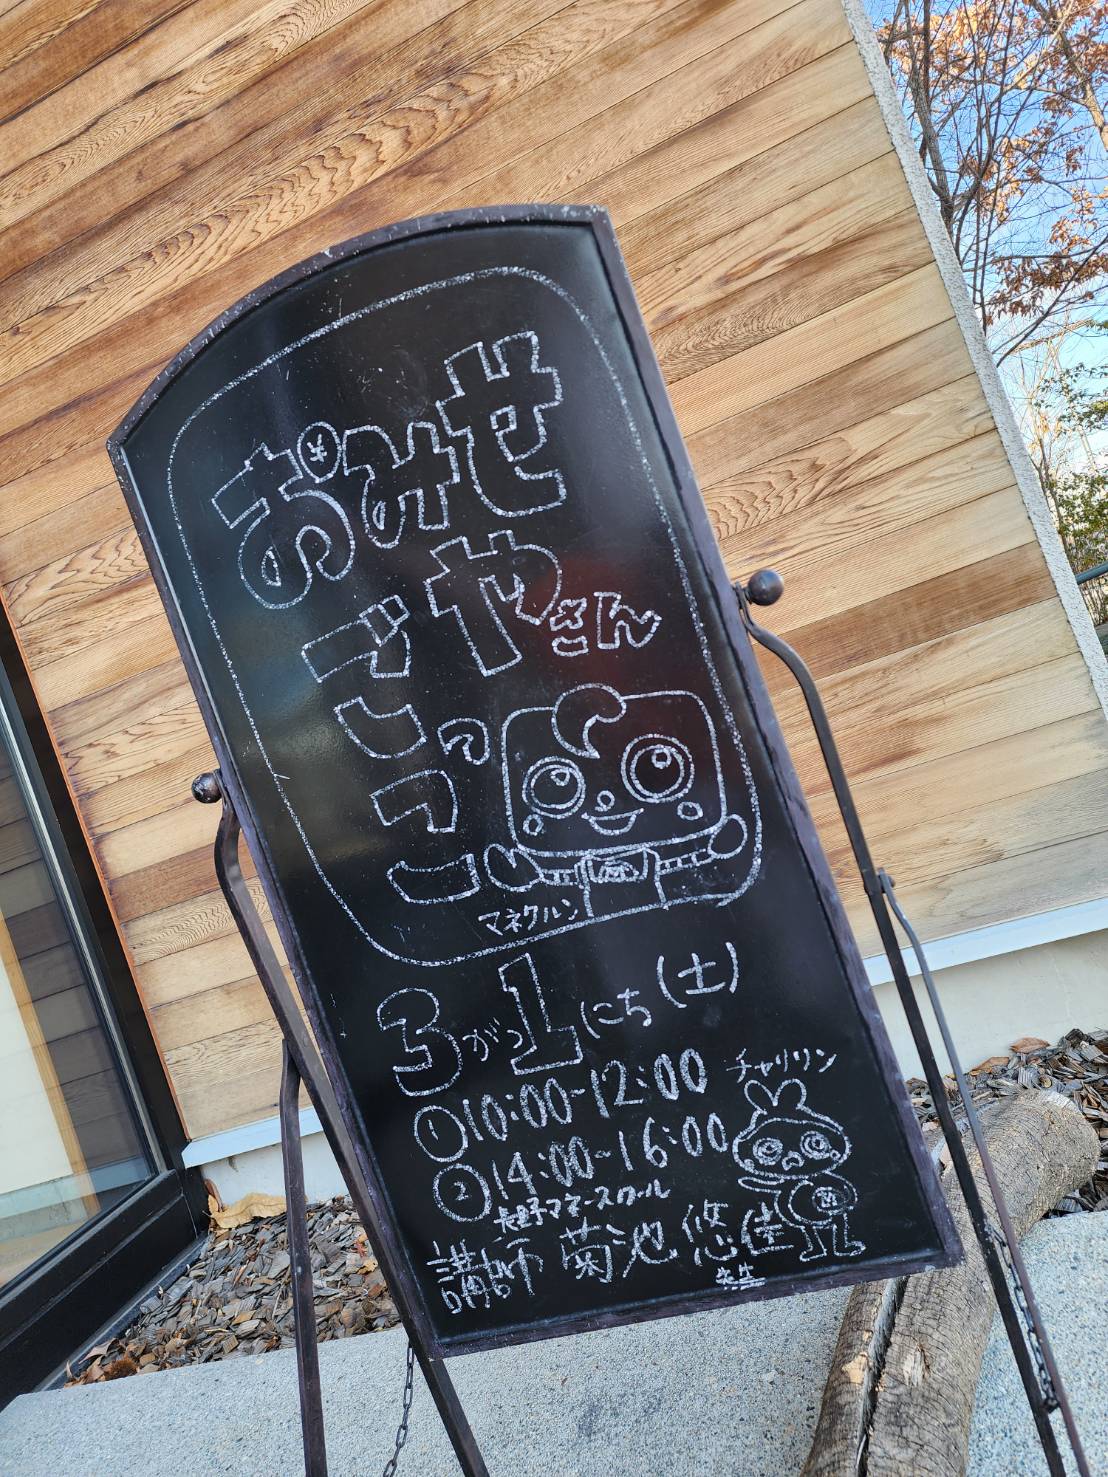 おみせ
やさん
ごっこ
マネクルン
3がつ1にち(土)
①10:00~12:00
チャリリン
②14:00~16:00
長野マネースクール
講師 菊池 悠佳
先生